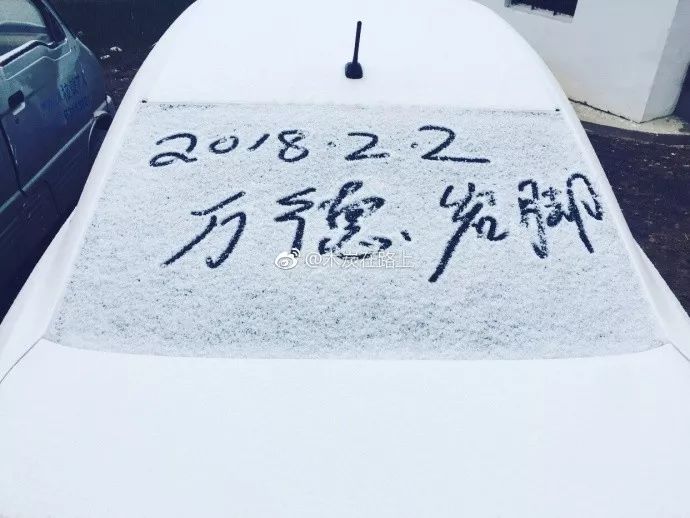 2018.2.2
万德 岩脚
在路上